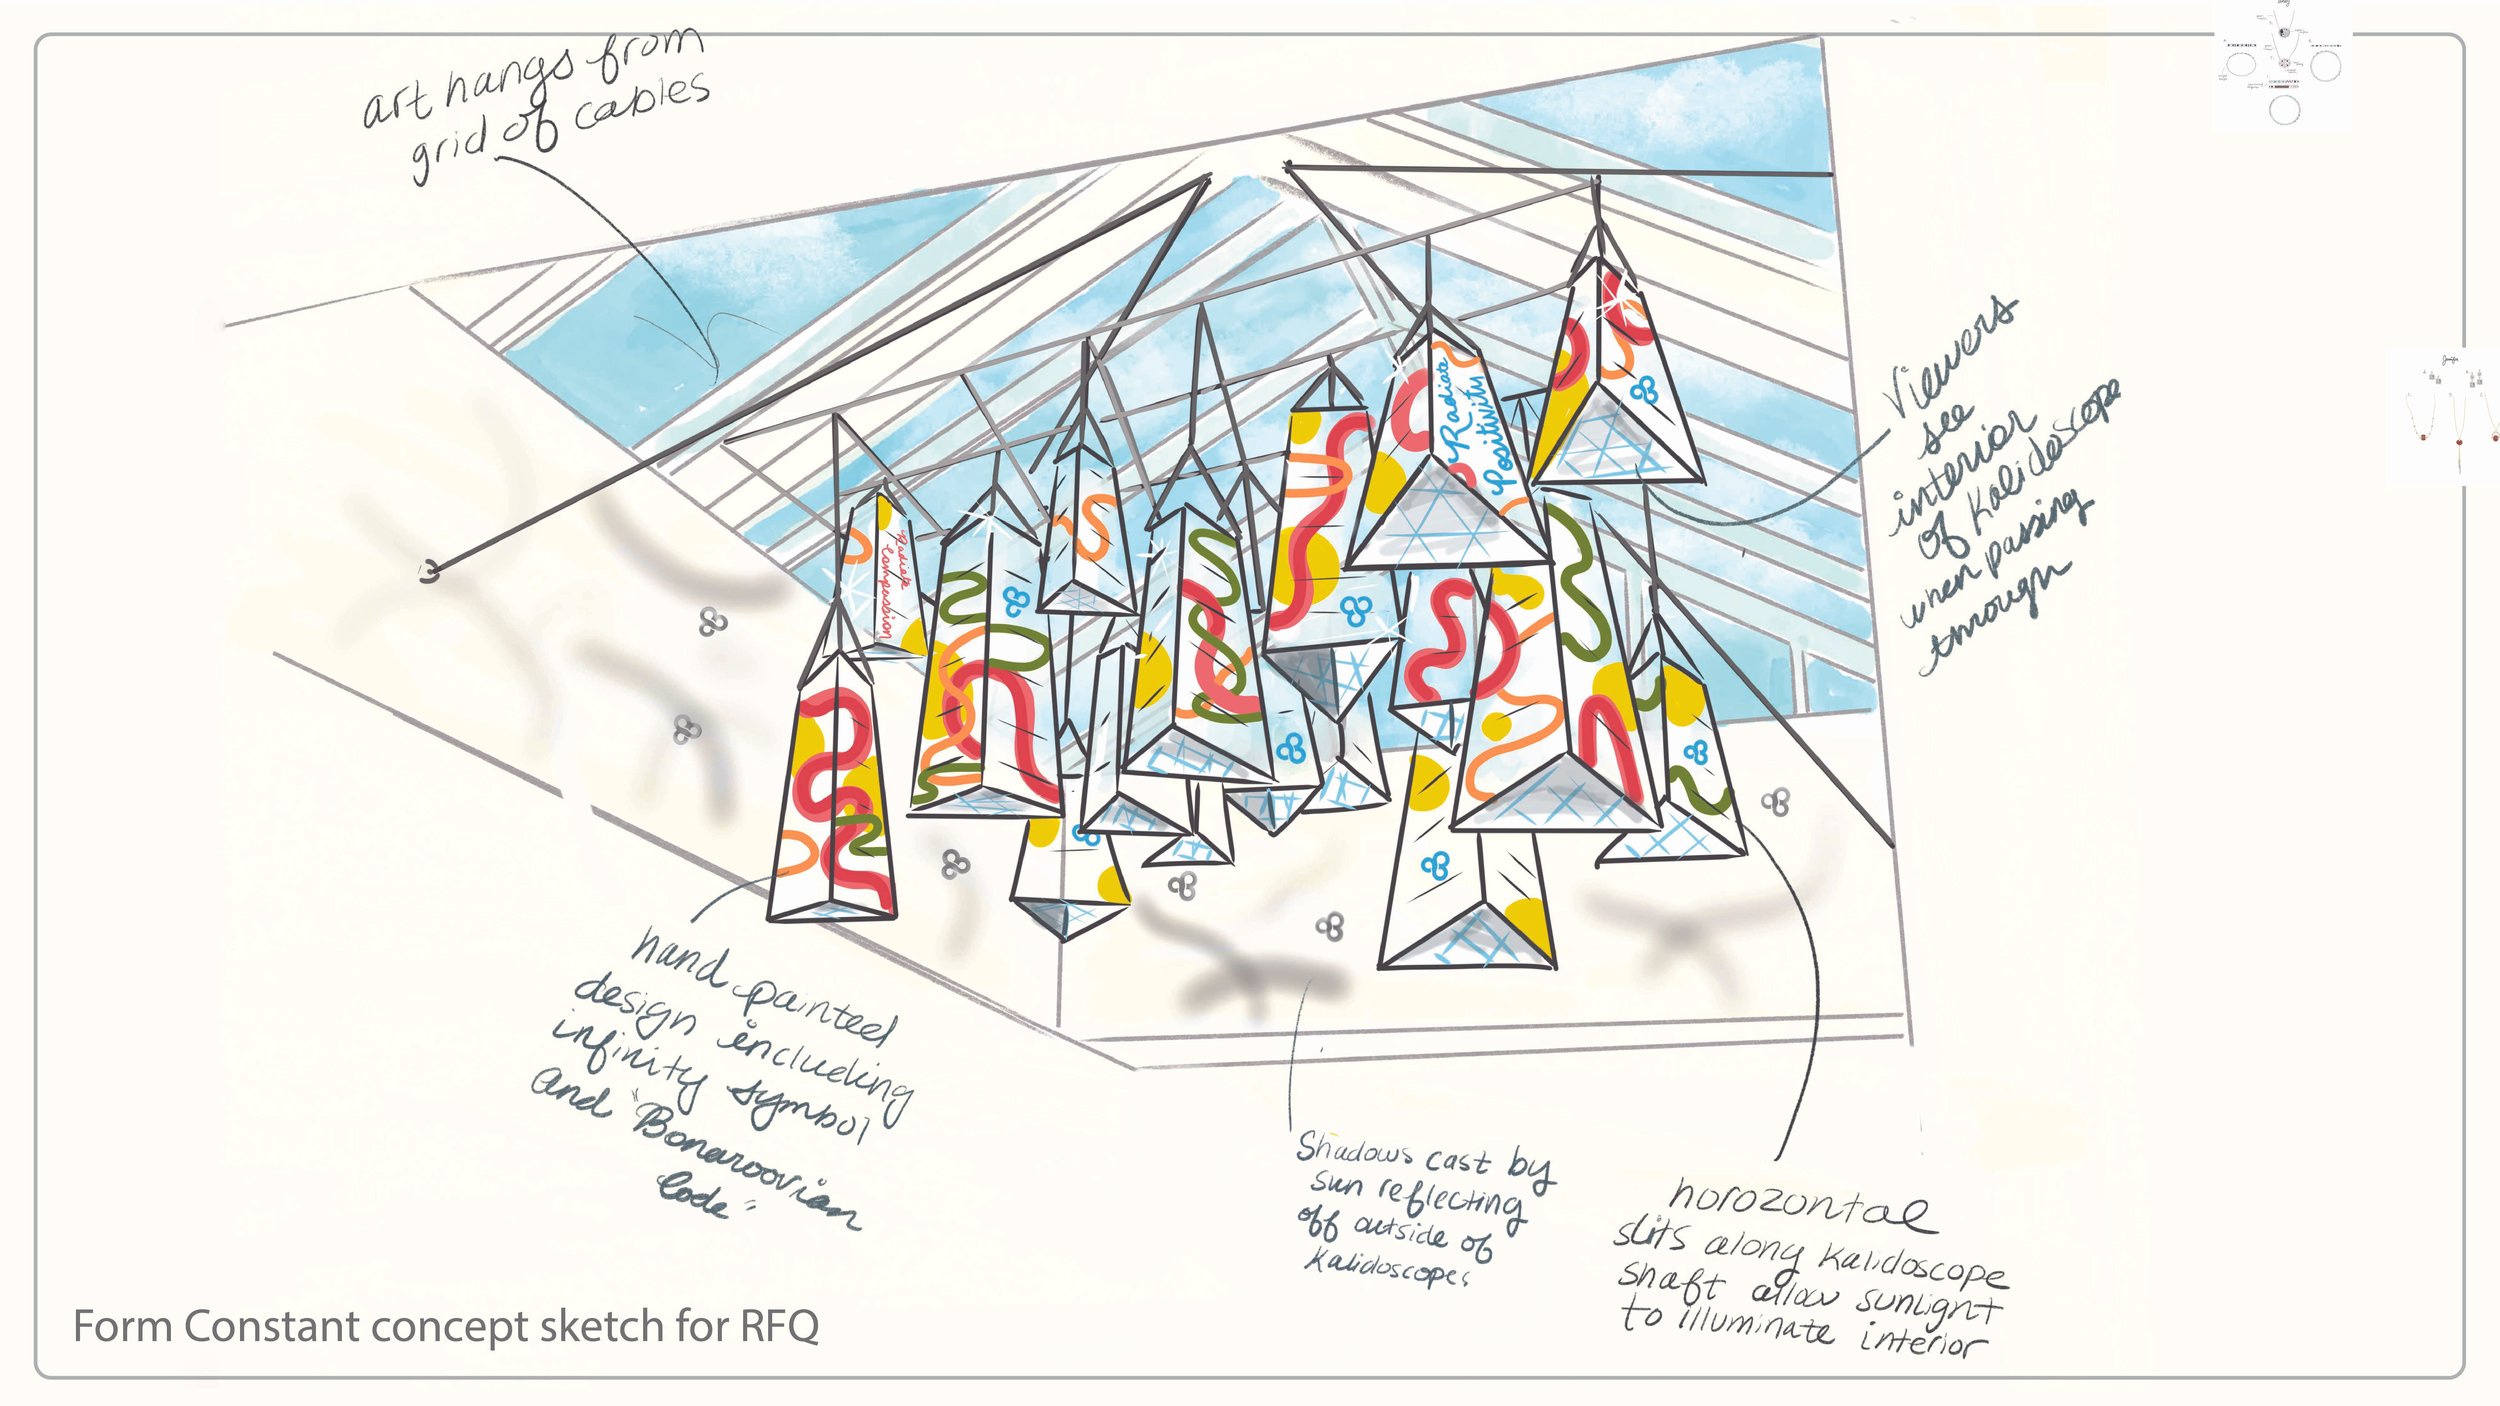 art hangs from
grid of cables
Viewers
see
interior
of Kalidoscope
when passing
through
Radiate
Positivity
Radiate
Compassion
hand painted
design including
infinity symbol
and "Bonaroovian
Code"
Shadows cast by
sun reflecting
off outside of
Kalidoscopes
horozontal
slits along Kalidoscope
shaft allow sunlight
to illuminate interior
Form Constant concept sketch for RFQ
Jenifer